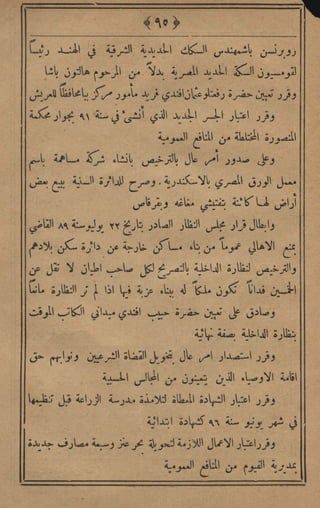 ﴿ ٩٥ ﴾
روبرتسن باشمهندس السكك الحديدية الشرقية في الهند رئيساً
لقومسيون السكة الحديد المصرية بدلاً من المرحوم هالتون باشا
وقرر تعيين حضرة رفعتلو عثمان افندي فريد مأمور مركز ببا محافظاً للعريش
وقرر اعتبار الجسر الجديد الذي أنشئ في سنة ٩١ بجوار محكمة
المنصورة المختلطة من المنافع العمومية
وعلى صدور أمر عال بالترخيص بانشاء شركة مساهمة باسم
معمل الورق المصري بالاسكندرية . وصرح للدائرة السنية ببيع بعض
أراض لها كائنة بتفتيشي مغاغه وبقرقاص
وابطال قرار مجلس النظار الصادر بتاريخ ٢٢ يوليو سنة ٨٩ القاضي
بمنع الاهالي عموماً من بناء مساكن خارجة عن دائرة سكن بلادهم
والترخيص لنظارة الداخلية بالتصريح لكل صاحب اطيان لا تقل عن
الخمسين فداناً تكون ملكاً له ببناء عزبة فيها اذا لم تر النظارة مانعاً
وصادق على تعيين حضرة حبيب افندي ميداني الكاتب الموقت
بنظارة الداخلية بصفة نهائية
وقرر استصدار امر عال بتخويل القضاة الشرعيين ونوابهم حق
اقامة الاوصياء الذين يتعينون من المجالس الحسبية
وقرر اعتبار الشهادة المعطاة لتلامذة مدرسة الزراعة قبل تنظيمها
في شهر يونيو سنة ٩٦ كشهادة ابتدائية
وقرر اعتبار الاعمال اللازمة لتحويلة بحر عنز وسيعة مصارف جديدة
بمديرية الفيوم من المنافع العمومية